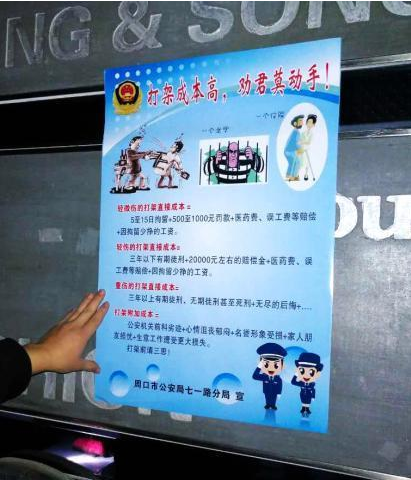 NG & SONG
打架成本高，劝君莫动手！
一个坐牢
一个住院
轻微伤的打架直接成本=
5至15日拘留+500至1000元罚款+医药费、误工费等赔偿
+因拘留少挣的工资。
轻伤的打架直接成本=
三年以下有期徒刑+20000元左右的赔偿金+医药费、误
工费等赔偿+因拘留少挣的工资。
重伤的打架直接成本=
三年以上有期徒刑、无期徒刑甚至死刑+无尽的后悔+....
打架附加成本=
公安机关前科劣迹+心情沮丧郁闷+名誉形象受损+家人朋
友担忧+生意工作遭受更大损失。
打架前请三思！
周口市公安局七一路分局 宣
ou